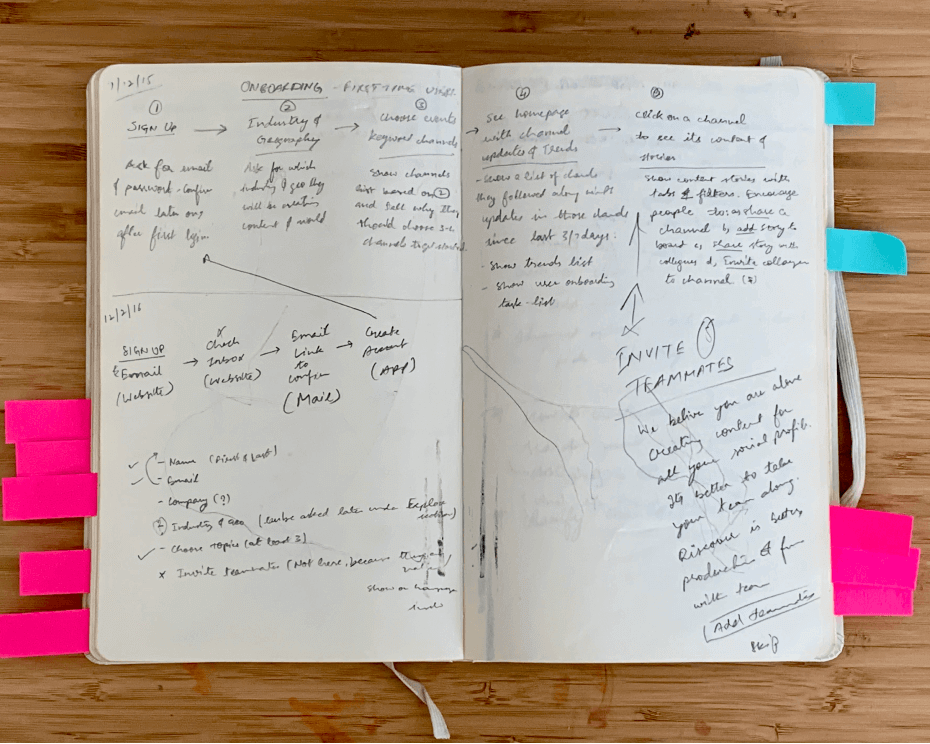 1/12/15
ONBOARDING - FIRST TIME USER
①
SIGN UP →
Ask for email
& password - Confirm
email later on,
after first login
②
Industry &
Geography →
Ask for which
industry & geo they
will be creating
content & world
③
Choose events
keyword channels →
Show channels
list based on ②
and tell why they
should choose
channels to get started
④
See homepage
with channel
updates & Trends →
- Show a list of
they followed along with
updates in those
since last 3/7 days.
- Show trends list
- Show user onboarding
task-list
⑤
Click on a channel
to see its content &
stories
Show content stories with
tabs & filters. Encourage
people to a, share a
channel b, add story to
board c, share story with
collegues d, Invite collegue
to channel.
12/2/16
SIGN UP
Email
(Website)
→ Check
Inbox
(Website)
→ Email
Link
to
confirm
(Mail)
→ Create
Account
(APP)
✓ - Name (First & Last)
✓ - Email
- Company (?)
② Industry & Geo (can be asked later under Explore
section)
✓ - Choose Topics (at least 3)
x Invite teammates (Not here, because they
show on homepage
INVITE
TEAMMATES
We belive you are alone
creating content for
all your social profile.
It's better to take
your team along.
Discover is better
productive & fun
with team
Add teammates
skip